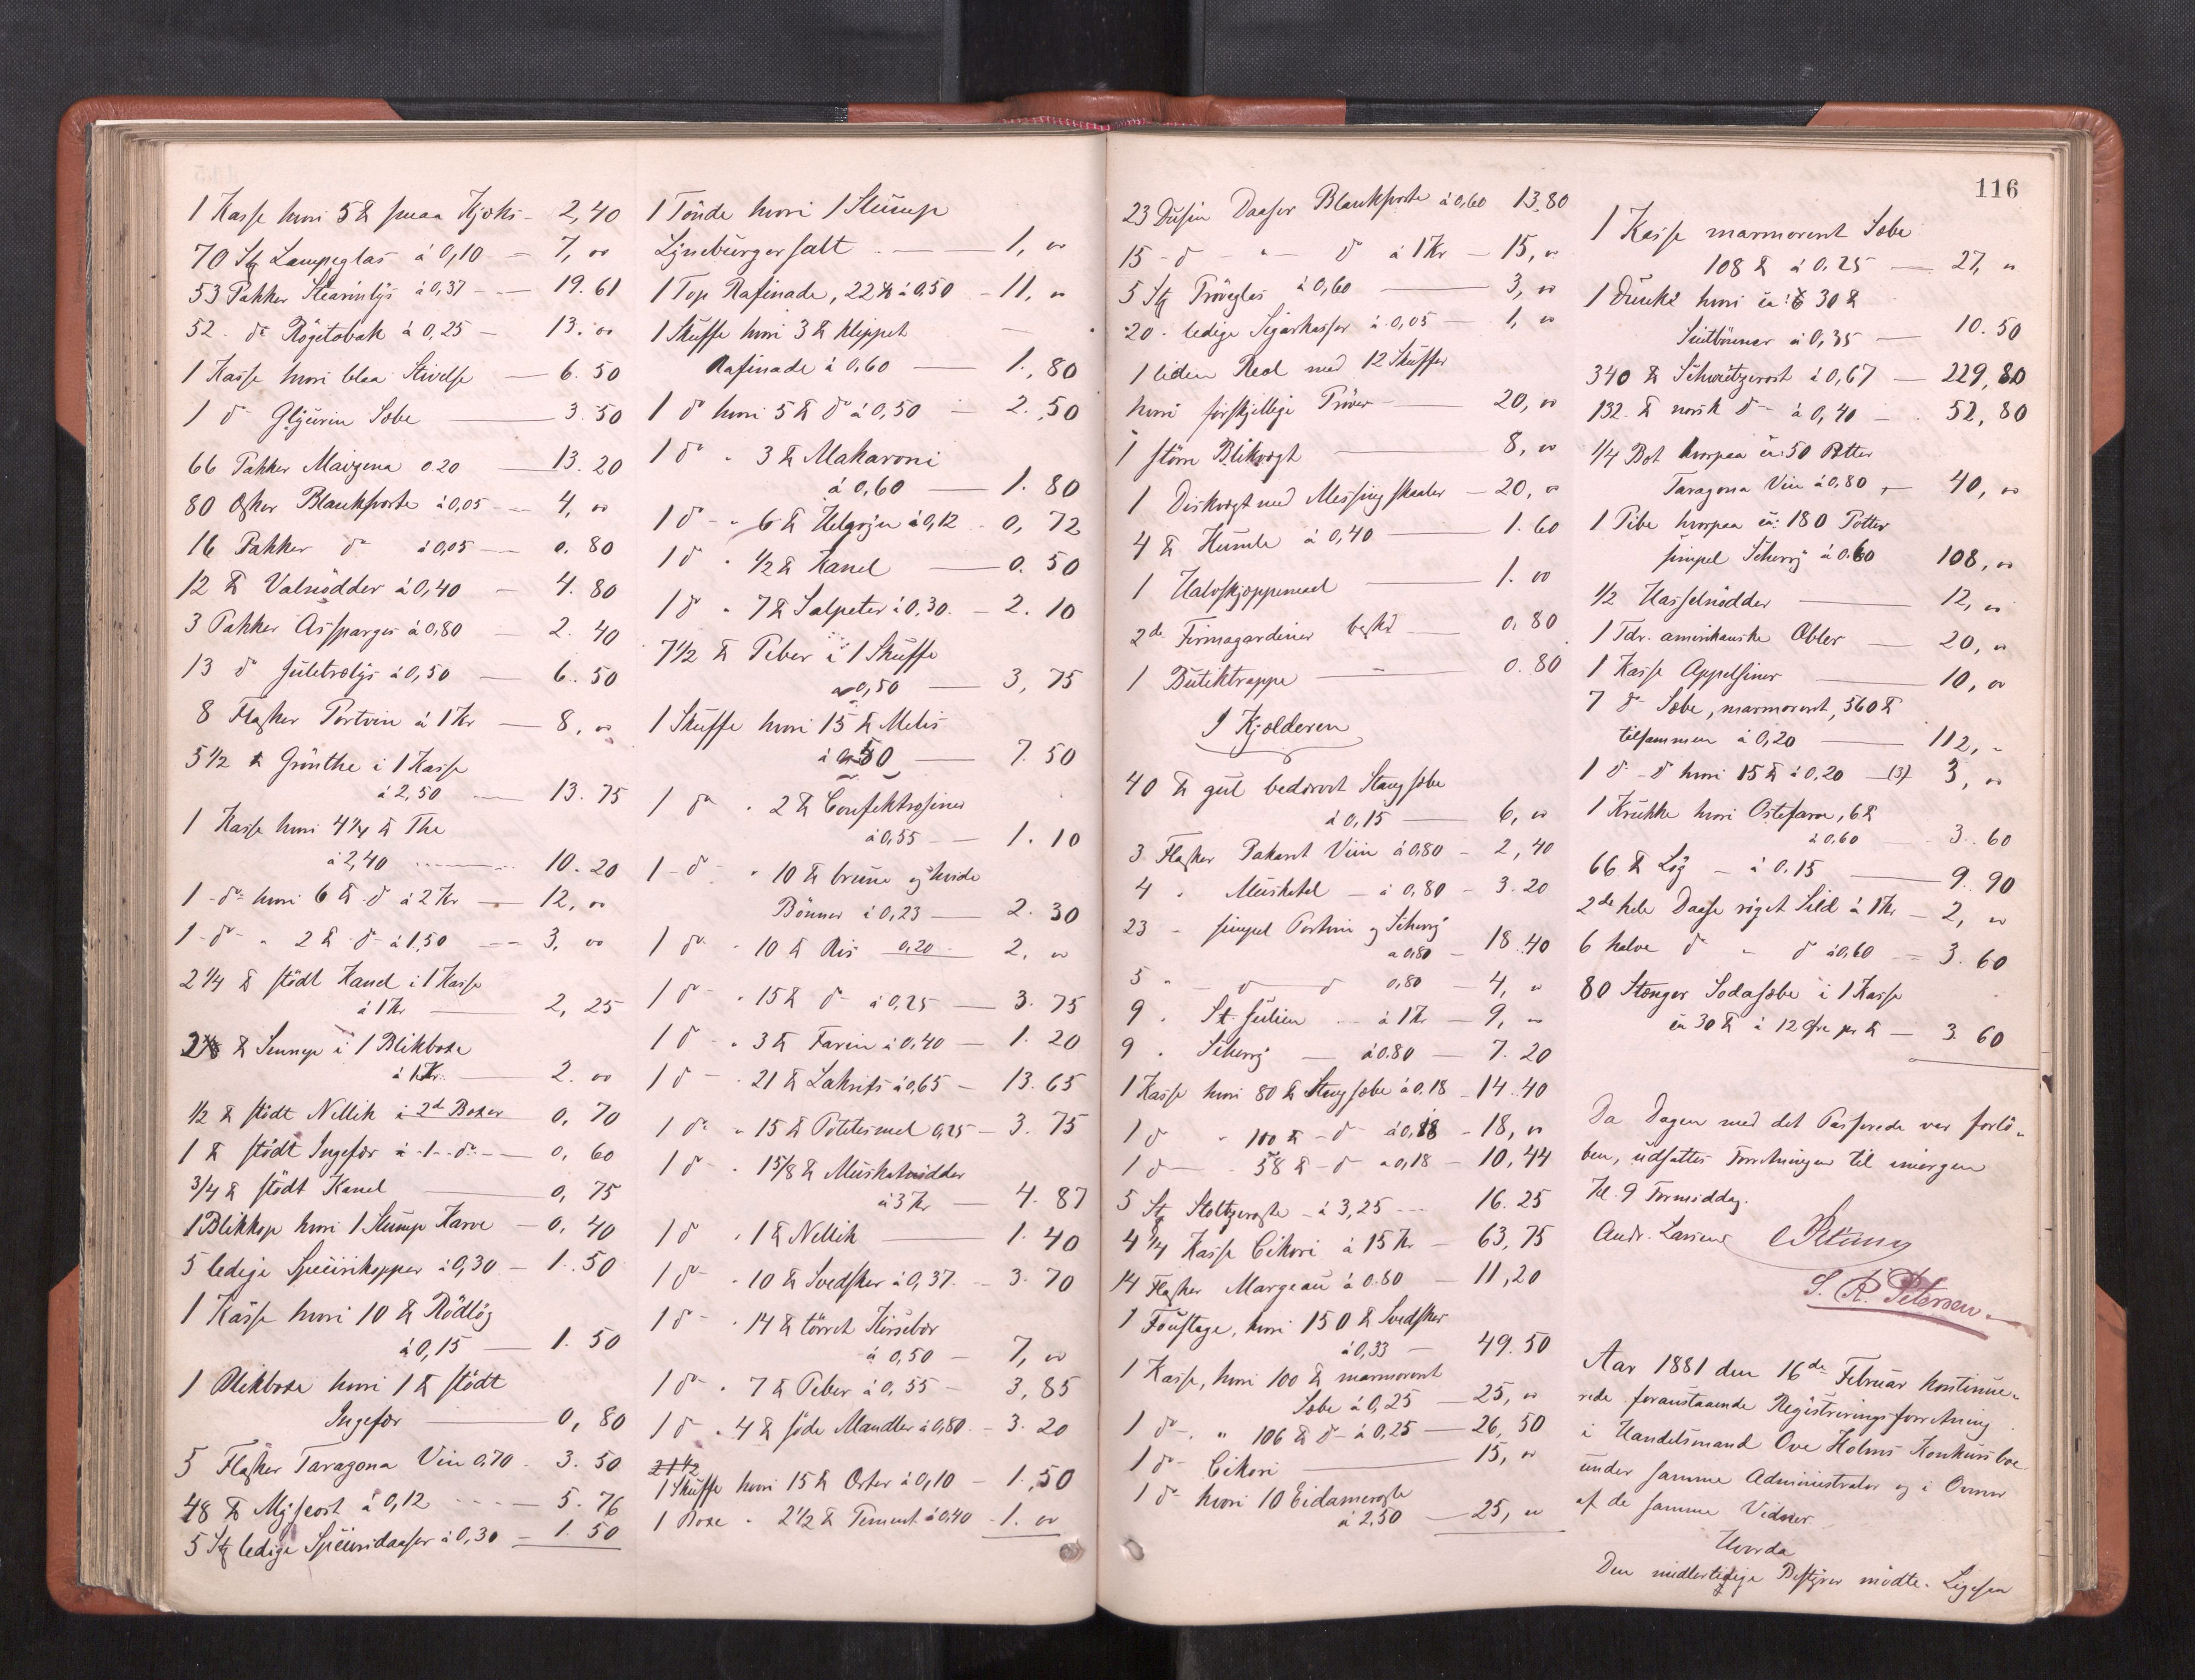 1 Kasse hvori 5 ℔ smaa Kjæks - 2,40
70 Stk Lampeglas á 0,10 - 7, 00
53 Pakker Stearinlys á 0,37 - 19.61
52 do Røgetobak á 0,25 - 13.00
1 Kasse hvori blaa Stivelse - 6.50
1 do Glycerin Sæbe - 3.50
66 Pakker Maizena 0.20 - 13.20
80 Æsker Blanksværte á 0,05 - 4, 00
16 Pakker do á 0,05 - 0.80
12 ℔ Valnødder á 0,40 - 4.80
3 Pakker Asparges á 0,80 - 2.40
13 do Juletrælys á 0,50 - 6.50
8 Flasker Portvin á 1 Kr - 8, 00
5 1/2 ℔ Grønthe i 1 Kasse
á 2,50 - 13.75
1 Kasse hvori 4 1/4 ℔ The
á 2,40 - 10.20
1 - do - hvori 6 ℔ do á 2 Kr - 12, 00
1 - do - " 2 ℔ do á 1,50 - 3, 00
2 1/4 ℔ stødt Kanel i 1 Kasse
á 1 Kr - 2,25
2 ℔ Sennep i 1 Blikboxe
á 1 Kr. - 2.00
1/2 ℔ stødt Nellik i 2de Boxer 0,70
1 ℔ stødt Ingefær i - 1 - do - 0,60
3/4 ℔ stødt Kanel - 0,75
1 Blikkop hvori 1 Slump Karve - 0,40
5 ledige Specerikopper á 0,30 - 1.50
1 Kasse hvori 10 ℔ Rødløg
á 0,15 - 1.50
1 Blikboxe hvori 1 ℔ stødt
Ingefær - 0,80
5 Flasker Taragona Vin 0.70 - 3.50
48 ℔ Mysost á 0,12 - 5.76
5 Stk ledige Specieridaaser á 0,30 - 1.50
1 Tønde hvori 1 Slump
Lyneburgersalt - 1, 00
1 Top Rafinade, 22 ℔ á 0,50 - 11, 00
1 Skuffe hvori 3 ℔ klippet
Rafinade á 0,60 - 1.,80
1 do hvori 5 ℔ do á 0,50 - 2.,50
1 do " 3 ℔ Makaroni
á 0,60 - 1.80
1 do - " 6 ℔ Helgryn á 0,12 - 0,72
1 do " 1/2 ℔ Kanel - 0.50
1 do " 7 ℔ Salpeter á 0,30. - 2.10
7 1/2 ℔ Peber i 1 Skuffe
á 0,50 - 3,75
1 Skuffe hvori 15 ℔ Melis
á 0,50 - 7.50
1 do " 2 ℔ Confektrosiner
á 0,55 - 1.10
1 - do - " 10 ℔ brune og hvide
Bønner á 0,23 - 2.30
1 do " 10 ℔ Ris 0,20 - 2, 00
1 do - " 15 ℔ do - á 0,25 - 3.75
1 do - " 3 ℔ Farin á 0,40 - 1.20
1 do - " 21 ℔ Lakrits á 0,65 - 13.65
1 do " 15 ℔ Potetesmel 0,25 - 3.75
1 do - " 1 5/8 ℔ Muskatnødder
á 3 Kr - 4.87
1 do " 1 ℔ Nellik - 1.40
1 do - " 10 ℔ Svedsker á 0,37. - 3.70
1 do - " 14 ℔ tørret Kirsebær
á 0,50 - 7, 00
1 do - " 7 ℔ Peber á 0,55 - 3,85
1 do " 4 ℔ søde Mandler á 0,80 - 3.20
2 1 1/2
1 Skuffe hvori 15 ℔ Orter á 0,10 - 1.50
1 Boxe " 2 1/2 ℔ Fernut á 0,40 - 1.00
116
23 Dusin Daaser Blanksværte á 0,60 13,80
15 - do - " - do á 1 Kr - 15, 00
5 Stk Prøveglas á 0,60 - 3, 00
20 - ledige Sigarkasser á 0,05 - 1, 00
1 liden Reol med 12 Skuffer
hvori forskjellige Prøver - 20, 00
1 større Blikvægt - 8, 00
1 Diskvægt med Messingskaaler - 20, 00
4 ℔ Humle á 0,40 - 1.60
1 Halvskjeppemaal - 1.00
2de Firmagardiner besk. - 0.80
1 Butiktrappe - 0.80
I Kjælderen
40 ℔ gul bedærvet Stangsæbe
á 0,15 - 6, 00
3 Flasker Pakaret Viin á 0.80 - 2,40
4 " Muskatel - á 0,80 - 3.20
23 " simpel Portvin og Scherry
á 0,80 - 18.40
5 " - do - do 0,80 - 4, 00
9 " St. Julien - á 1 Kr - 9, 00
9 " Scherry - á 0.80 - 7.20
1 Kasse hvori 80 ℔ Stangsæbe á 0.18 - 14.40
1 do " 100 ℔ - do - á 0,18 - 18, 00
1 do - " 58 ℔ - do á 0,18 - 10,44
5 Stk Stoltzeroste - á 3,25 - 16.25
4 1/4 Kasse Cikori á 15 Kr - 63,75
14 Flasker Margeau á 0.80 - 11,20
1 Foustage, hvori 150 ℔ Svedsker
á 0,33 - 49.50
1 Kasse, hvori 100 ℔ marmoreret
Sæbe á 0,25 - 25, 00
1 do - " 106 ℔ do - á 0,25 - 26,50
1 do - Cikori - 15, 00
1 do hvori 10 Eidameroste
á 2.50 - 25, 00
1 Kasse marmoreret Sæbe
108 ℔ á 0,25 - 27, 00
1 Dunk hvori ca: 30 ℔
Suitbønner á 0,35 - 10.50
340 ℔ Schweitzerost á 0,67 - 229,80
132. ℔ norsk do - á 0,40 - 52,80
1/4 Bot hvorpaa ca: 50 Potter
Taragona Vin á 0,80 - 40, 00
1 Pibe hvorpaa ca: 180 Potter
simpel Scherry á 0.60 108, 00
1/2 Hasselnødder - 12, 00
1 Tdr. amerikanske Æbler - 20, 00
1 Kasse Appelsiner - 10, 00
7 do - Sæbe, marmoreret, 560 ℔
tilsammen á 0,20 - 112, -
1 do - do hvori 15 ℔ á 0,20 - (3) 3, 00
1 Krukke hvori Ostefarve, 6 ℔
á 0.60 - 3.60
66 ℔ Løg - á 0.15 - 9.90
2de hele Daase røget Sild á 1 Kr - 2, 00
6 halve do " do á 0,60 - 3.60
80 Stænger Sodasæbe i 1 Kasse
ca 30 ℔ á 12 Øre pr ℔ - 3.60
Da Dagen med det Passerede var forlø-
ben, udsattes Forretningen til imorgen
Kl. 9 Formiddag.
Andr. Larsen
S. R. Petersen.
Aar 1881 den 16de Februar kontinue-
rede foranstaaende Registreringsforretning
i Handelsmand Ove Holms Konkursboe
under samme Administrator og i Overvær
af de samme Vidner
Hvorda
Den midlertidige Bestyrer mødte. Ligesaa